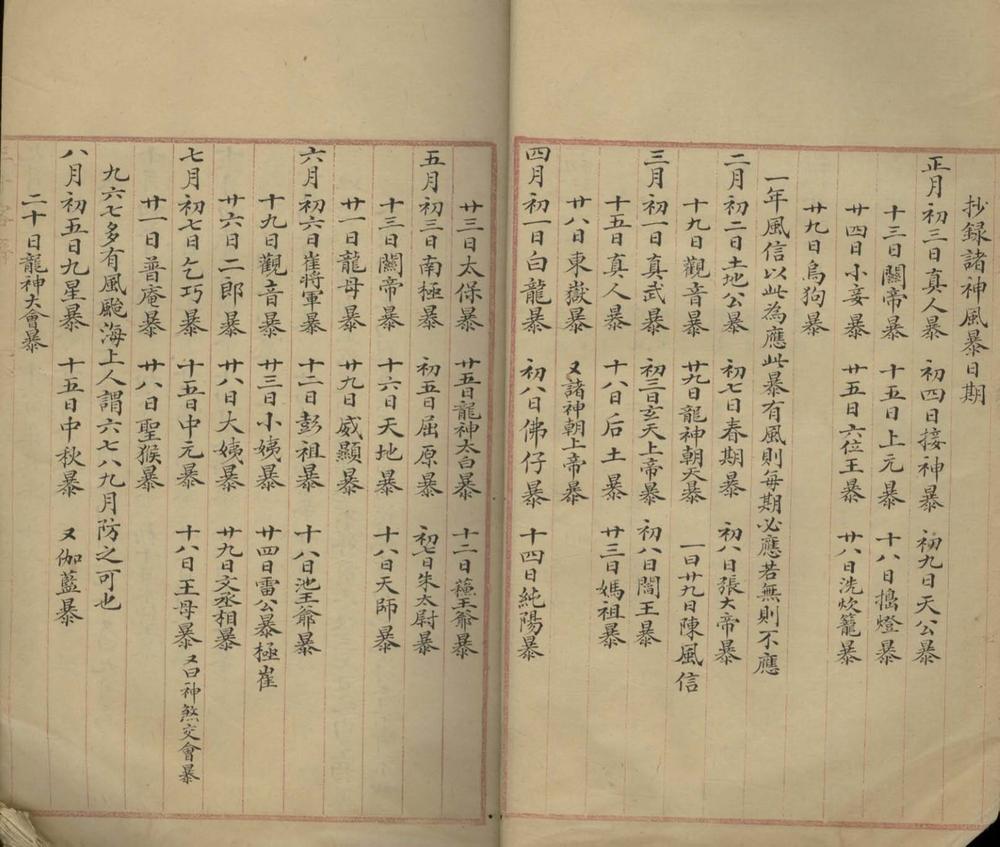 抄録諸神風暴日期
正月初三日真人暴 初四日接神暴 初九日天公暴
十三日關帝暴 十五日上元暴 十八日搗燈暴
廿四日小妾暴 廿五日六位王暴 廿八日洗炊籠暴
廿九日烏狗暴
一年風信以此為應此暴有風則每期必應若無則不應
二月初二日土地公暴 初七日春期暴 初八日張大帝暴
十九日觀音暴 廿九日龍神朝天暴 一曰廿九日陳風信
三月初一日真武暴 初三日玄天上帝暴 初八日閻王暴
十五日真人暴 十八日后土暴 廿三日媽祖暴
廿八日東嶽暴 又諸神朝上帝暴
四月初一日白龍暴 初八日佛仔暴 十四日純陽暴
廿三日太保暴 廿五日龍神太白暴 十二日蘓王爺暴
五月初三日南極暴 初五日屈原暴 初七日朱太尉暴
十三日關帝暴 十六日天地暴 十八日天師暴
廿一日龍母暴 廿九日威顯暴
六月初六日崔將軍暴 十二日彭祖暴 十八日池王爺暴
十九日觀音暴 廿三日小姨暴 廿四日雷公暴極崔
廿六日二郎暴 廿八日大姨暴 廿九日文丞相暴
七月初七日乞巧暴 十五日中元暴 十八日王母暴 又曰神煞交會暴
廿一日普庵暴 廿八日聖猴暴
九六七多有風颱海上人謂六七八九月防之可也
八月初五日九星暴 十五日中秋暴 又伽藍暴
二十日龍神大會暴